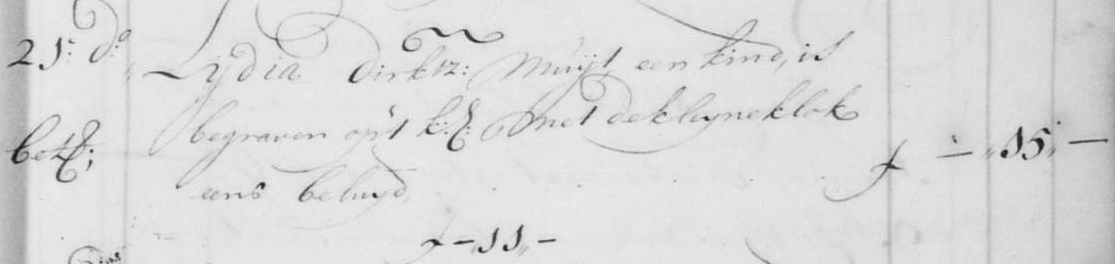 25: d:o Lydia Dirkz: Muijt een kind, is
begraven op't k:h: met de kleyne klok
bet:
eens beluyd, f - " 15 " -
f - " 11 " -